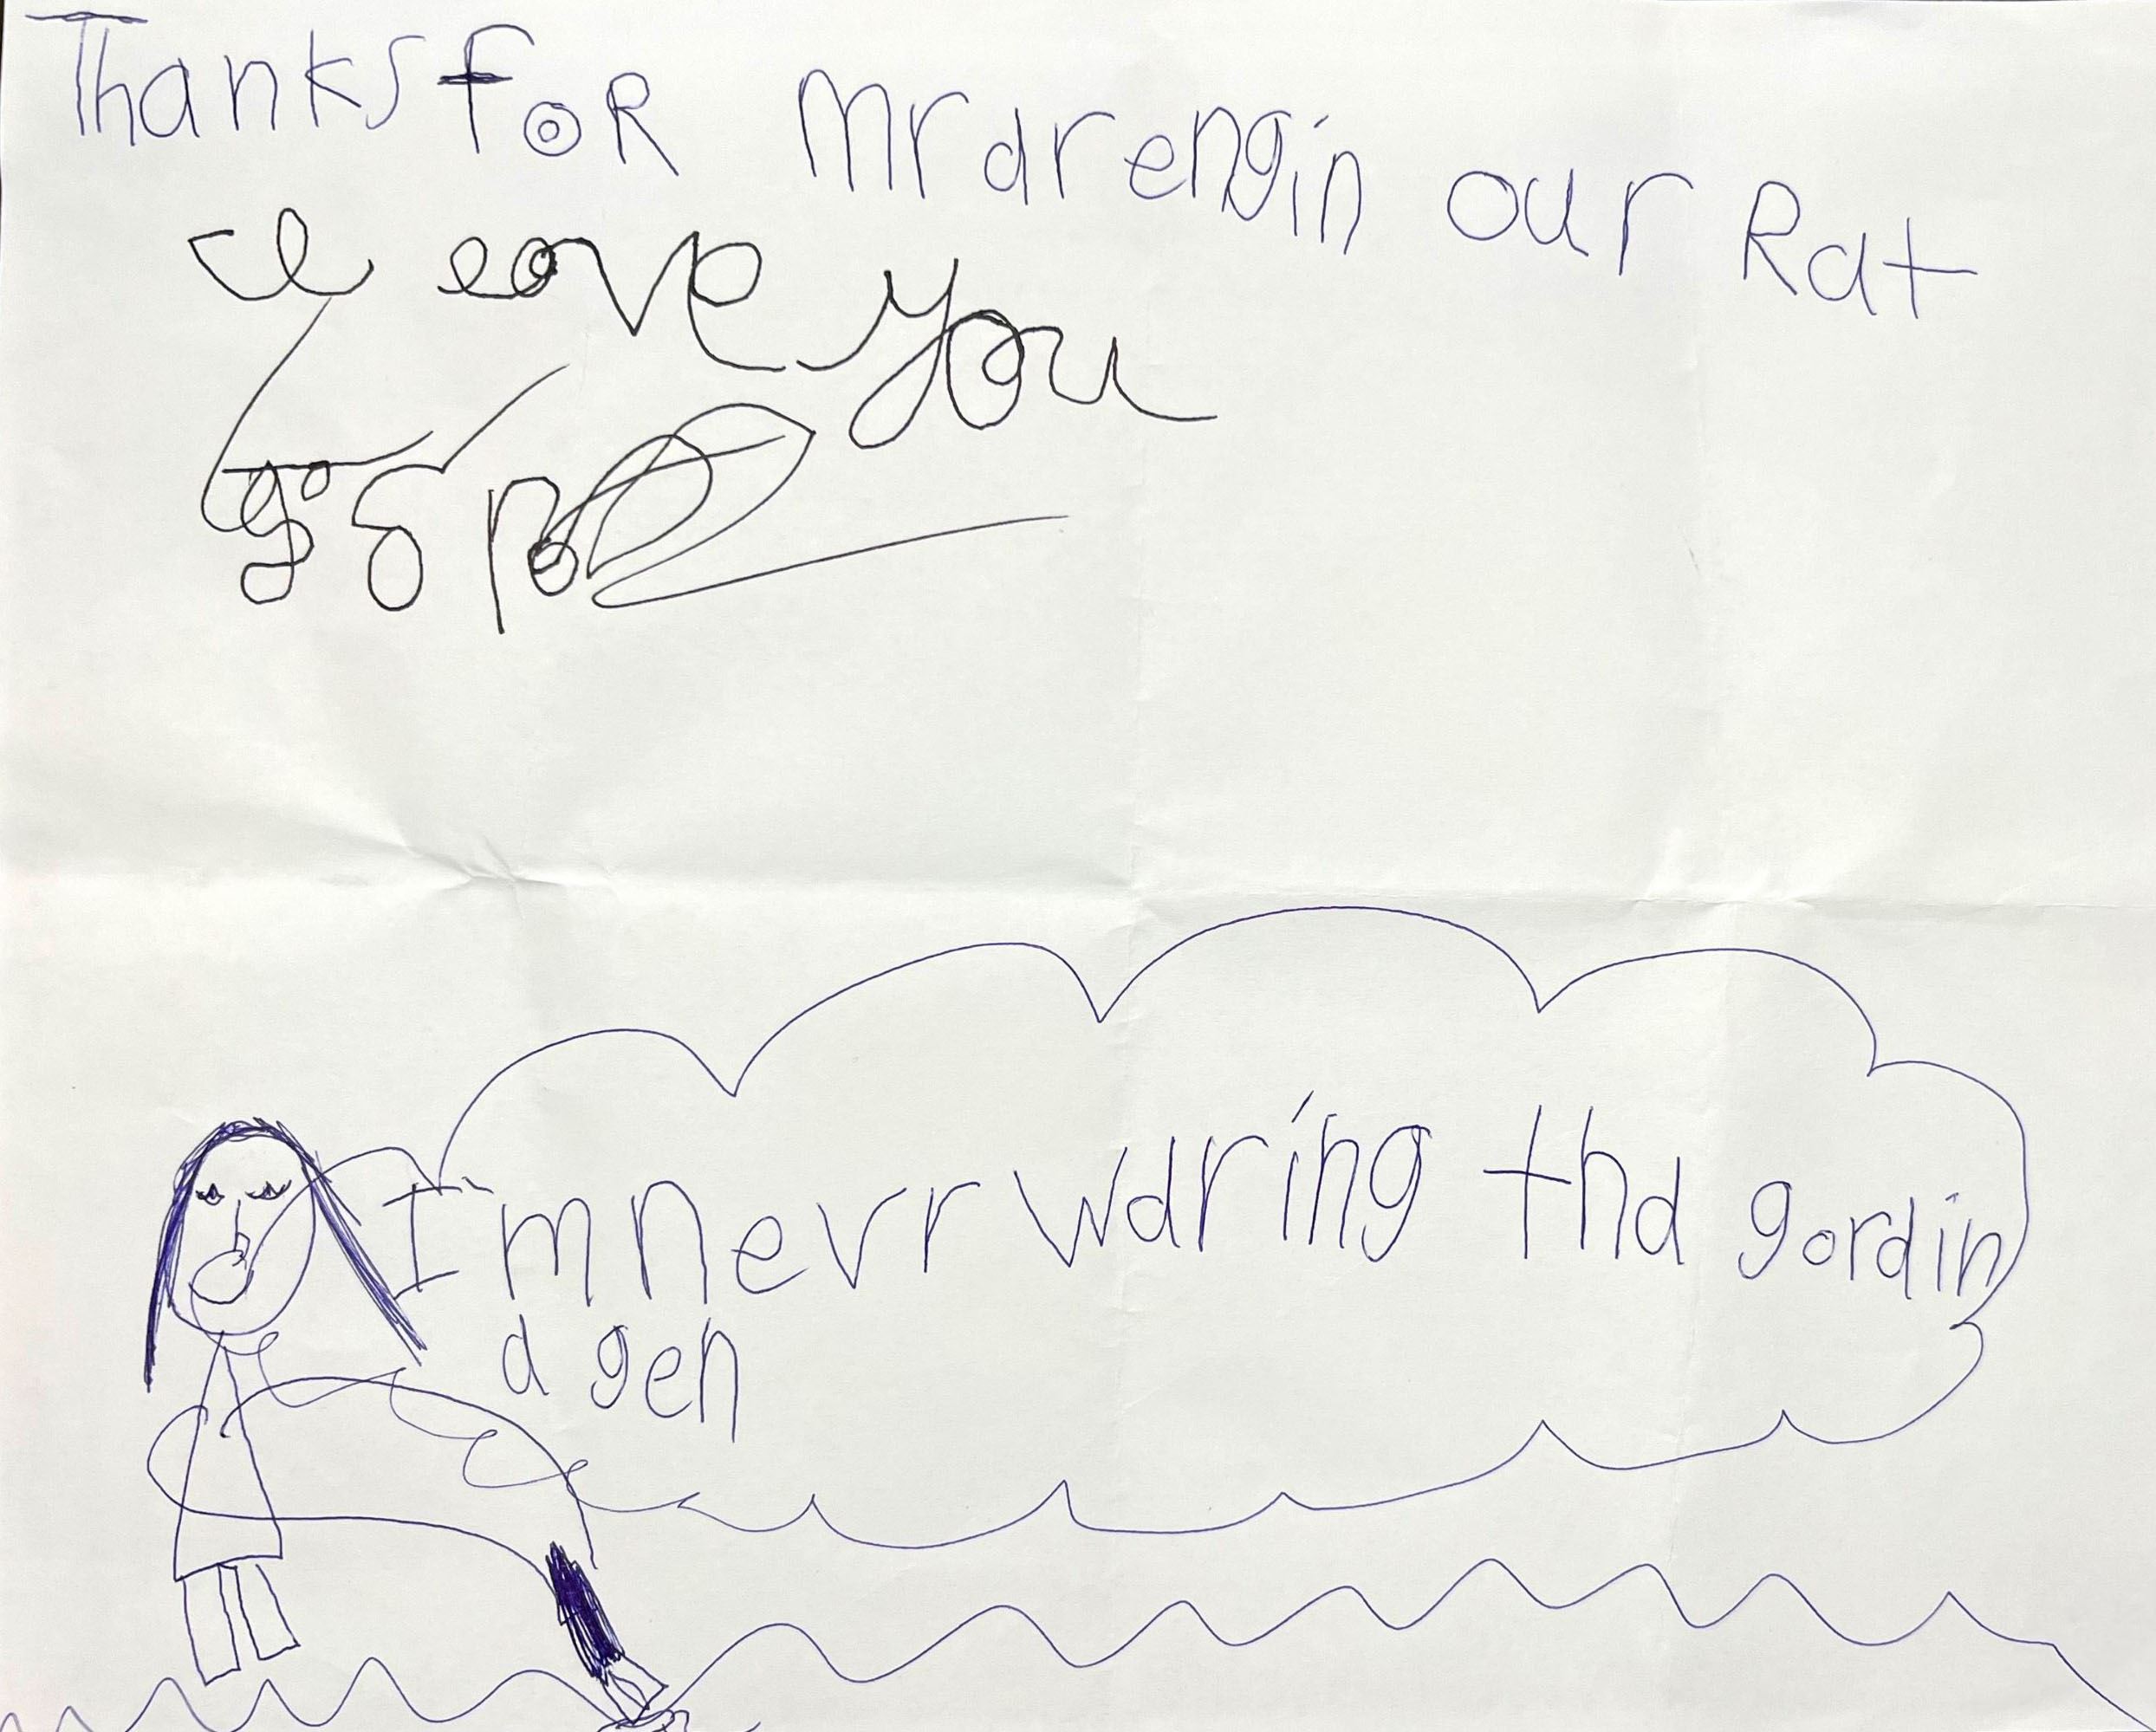 Thanks foR mrdrengin our Rat
I love you
I'm nevr waring tha gordin
a gen